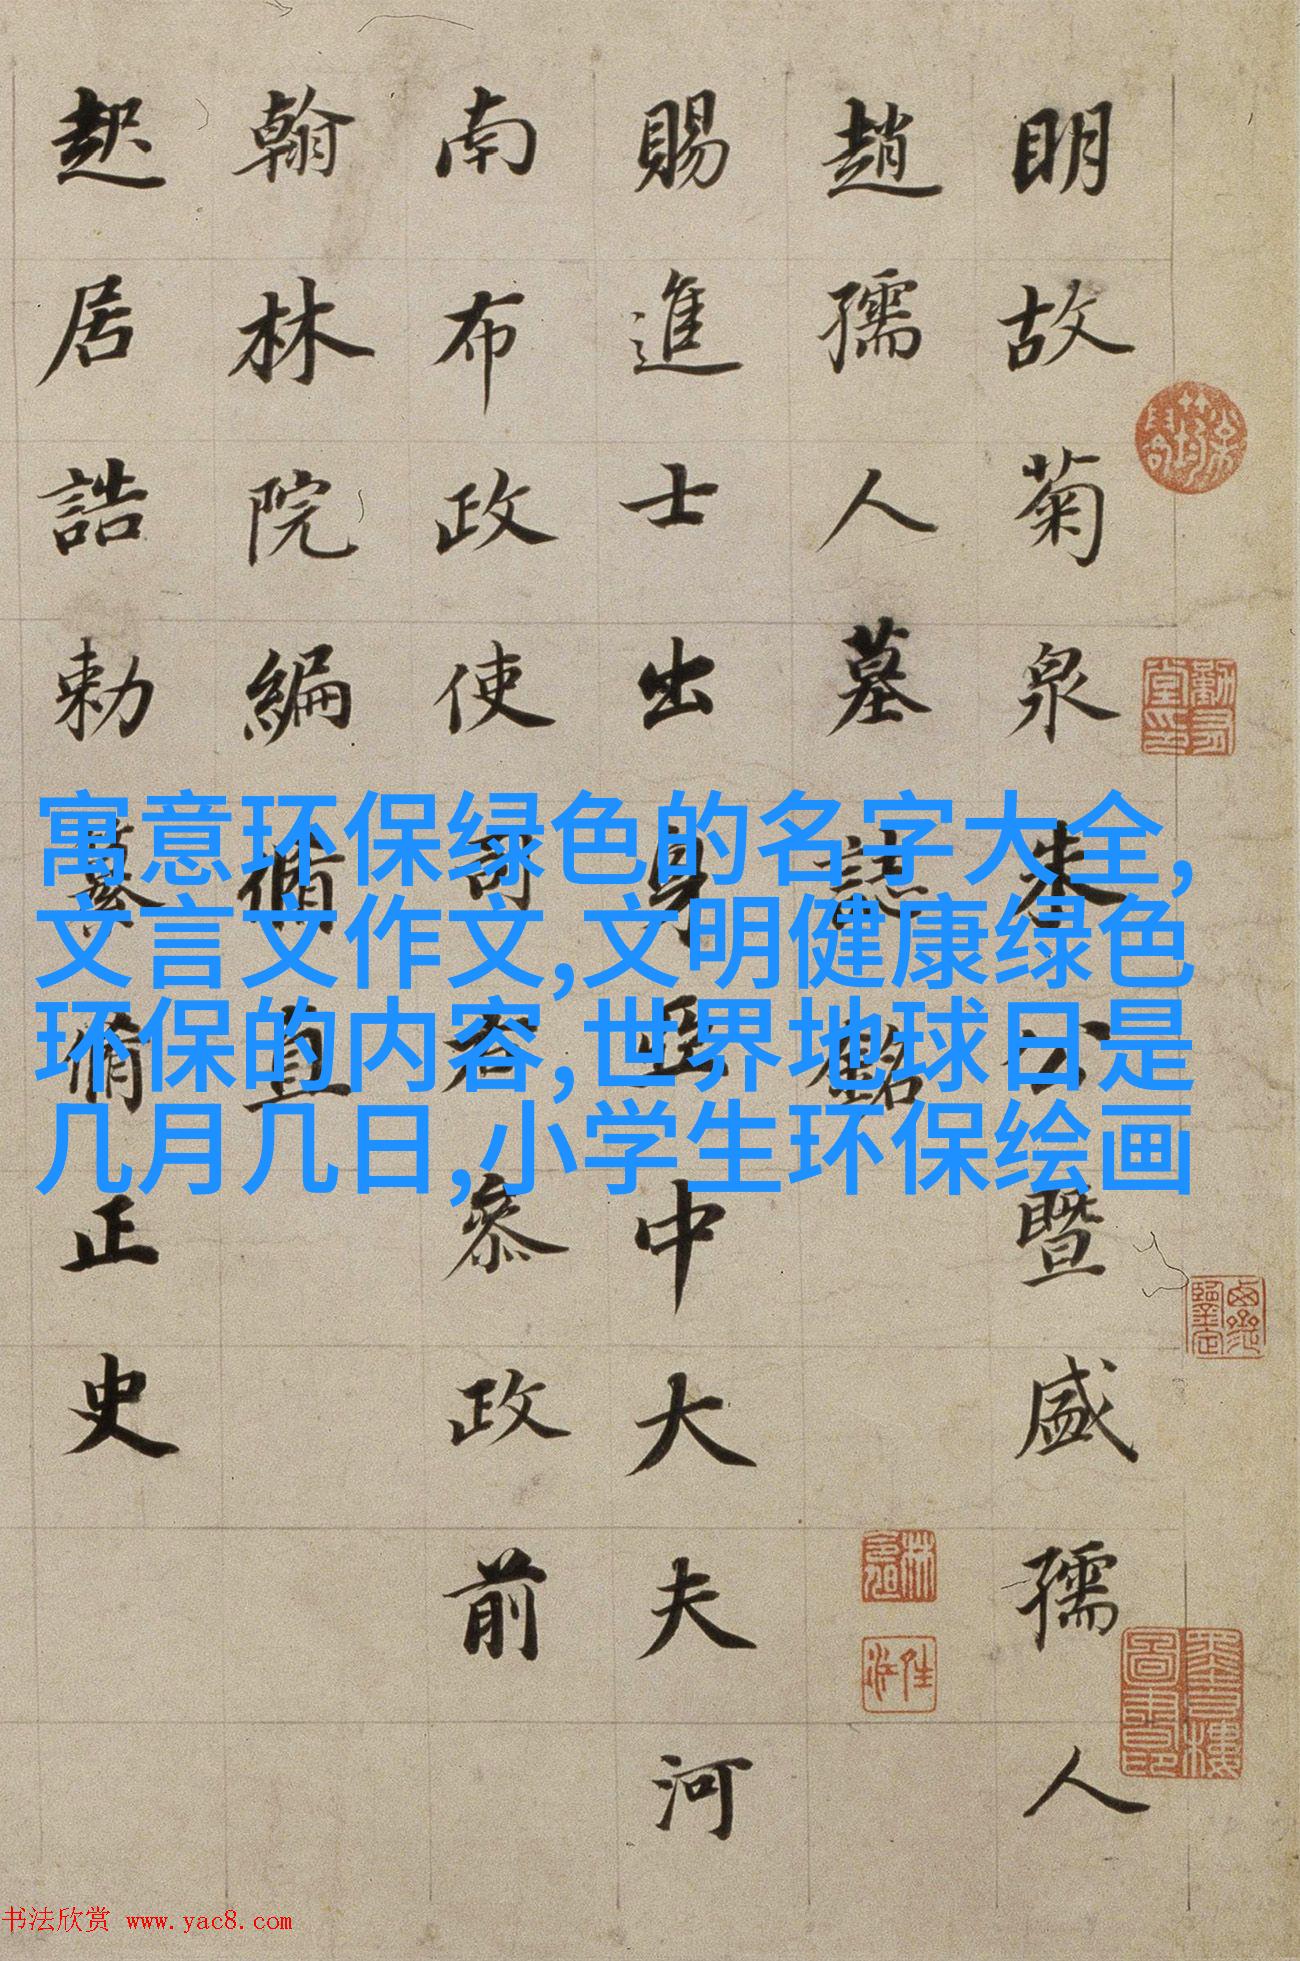 明故菊泉朱公暨盛孺人
趙孺人墓誌銘
賜進士出身亞中大夫河
南布政使司右參政前
翰林院編脩直
起居誥勅纂脩正史
寓意环保绿色的名字大全,
文言文作文,文明健康绿色
环保的内容,世界地球日是
几月几日,小学生环保绘画
书法欣赏 www.yac8.com